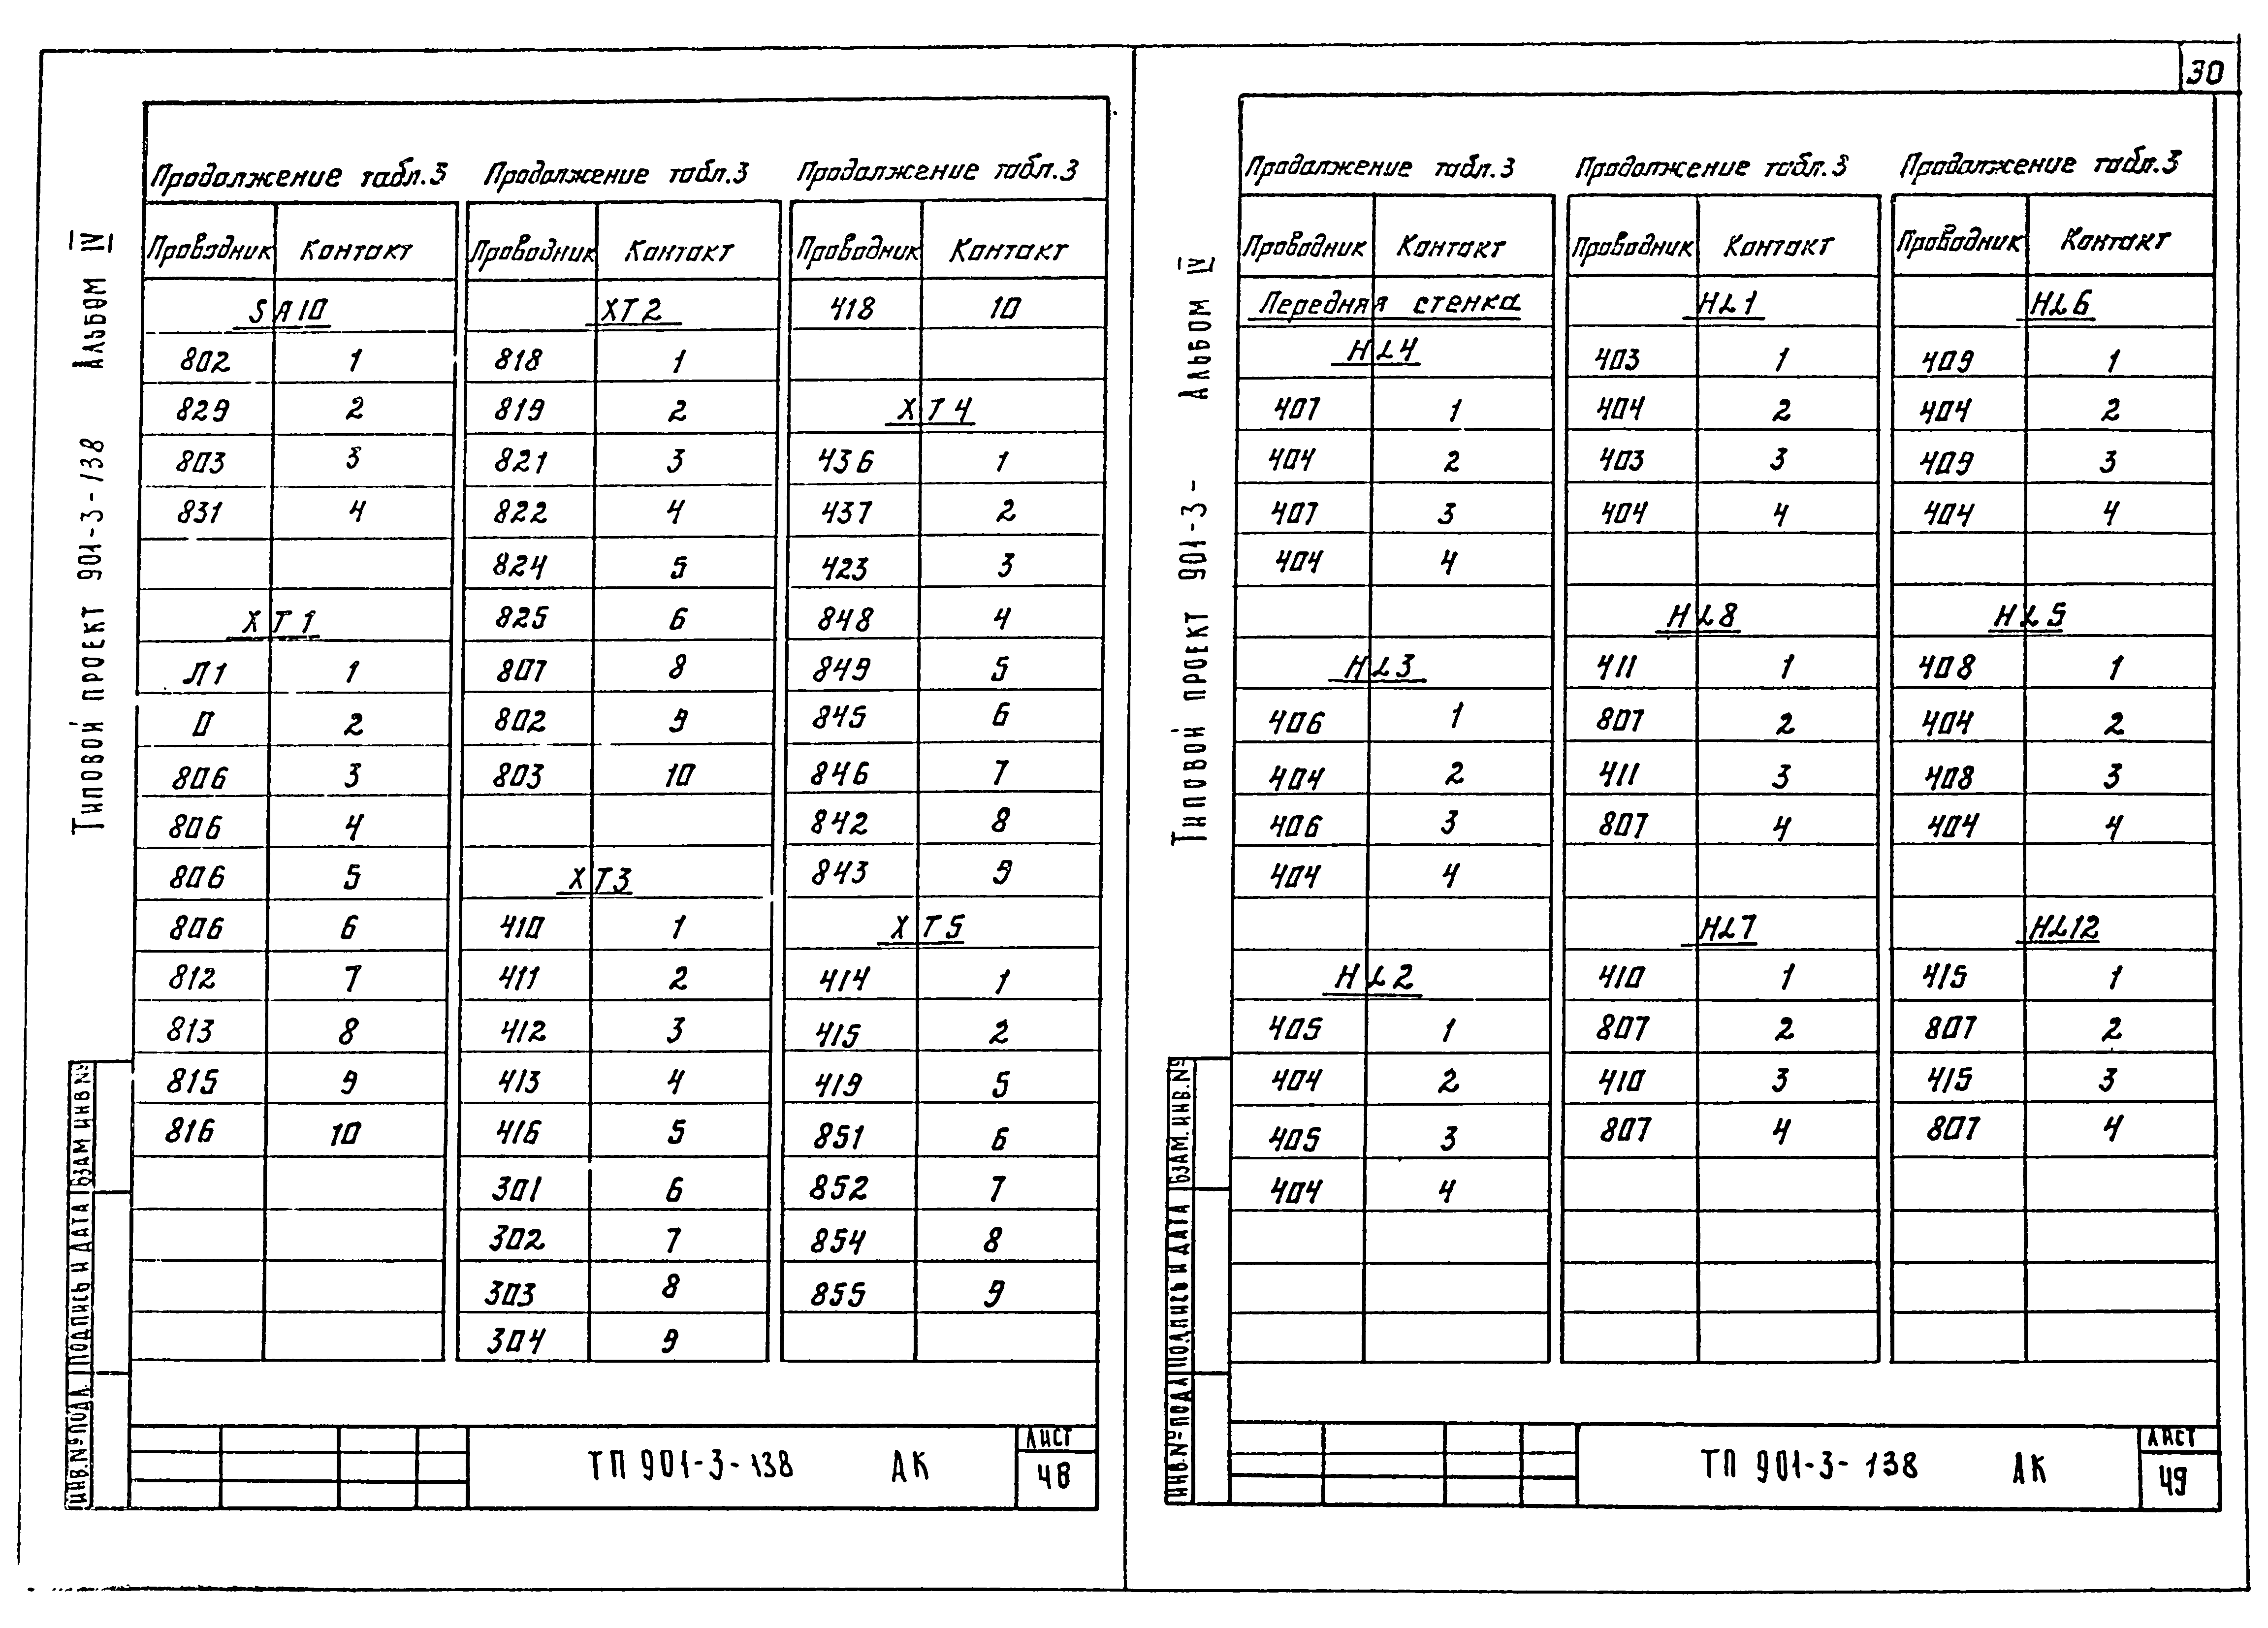 30
Типовой проект 901-3-138 Альбом IV
Продолжение табл.3
Проводник Контакт
SA10
802 1
829 2
803 3
831 4
XT1
Л1 1
0 2
806 3
806 4
806 5
806 6
812 7
813 8
815 9
816 10
Продолжение табл.3
Проводник Контакт
XT2
818 1
819 2
821 3
822 4
824 5
825 6
807 8
802 9
803 10
XT3
410 1
411 2
412 3
413 4
416 5
301 6
302 7
303 8
304 9
Продолжение табл.3
Проводник Контакт
418 10
XT4
436 1
437 2
423 3
848 4
849 5
845 6
846 7
842 8
843 9
XT5
414 1
415 2
419 5
851 6
852 7
854 8
855 9
ИНВ.№ ПОДЛ. ПОДПИСЬ И ДАТА ВЗАМ ИНВ №
ТП 901-3-138 АК
ЛИСТ
48
Типовой проект 901-3- Альбом IV
Продолжение табл.3
Проводник Контакт
Передняя стенка
HL4
407 1
404 2
407 3
404 4
HL3
406 1
404 2
406 3
404 4
HL2
405 1
404 2
405 3
404 4
Продолжение табл.3
Проводник Контакт
HL1
403 1
404 2
403 3
404 4
HL8
411 1
807 2
411 3
807 4
HL7
410 1
807 2
410 3
807 4
Продолжение табл.3
Проводник Контакт
HL6
409 1
404 2
409 3
404 4
HL5
408 1
404 2
408 3
404 4
HL12
415 1
807 2
415 3
807 4
ИНВ.№ ПОДЛ ПОДПИСЬ И ДАТА ВЗАМ. ИНВ.№
ТП 901-3-138 АК
ЛИСТ
49